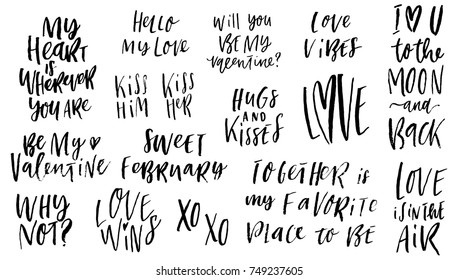 MY
HEART
is
WHEREVER
YOU ARE
HELLO
MY LOVE
Will you
BE MY
Valentine?
LOVE
ViBES
I ♡ U
to the
MOON
~and~
BACK
KISS
HIM
KISS
HER
HUGS
AND
KISSES
LOVE
BE MY ♡
Valentine
SWEET
FEBRUARY
WHY
NOT?
LOVE
WiNS
XO
XO
TOGETHER is
my FAVORITE
PLACE to BE
LOVE
iS iN THE
AiR
www.shutterstock.com · 749237605